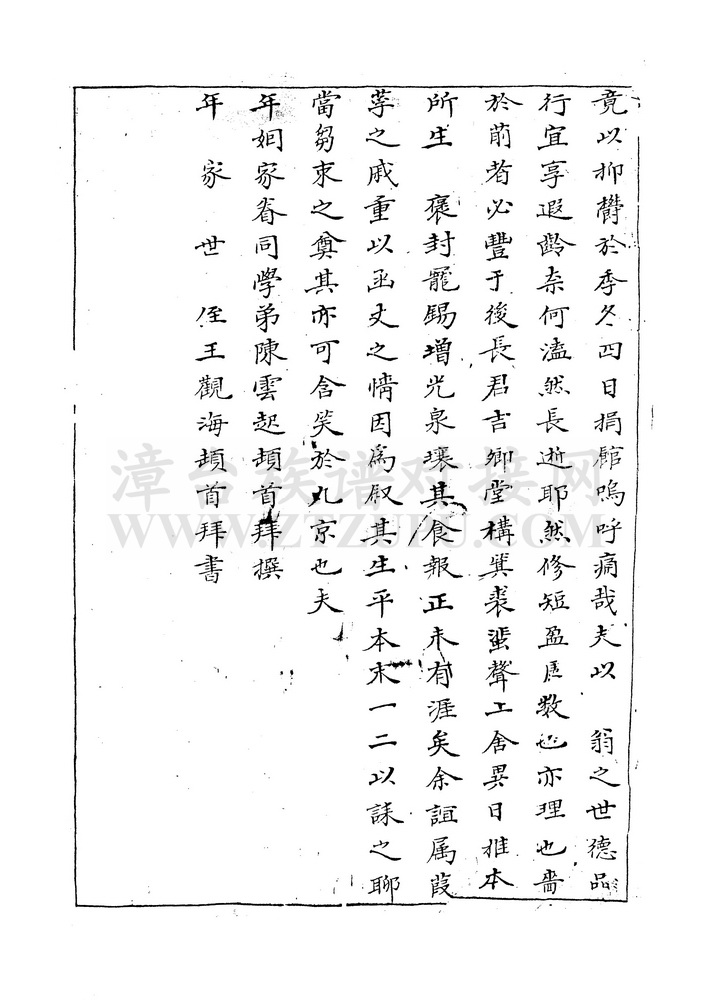 竟以抑欝於季冬四日捐館嗚呼痛哉夫以　翁之世德品
行宜享遐齡柰何溘然長逝耶然修短盈虗數也亦理也嗇
於前者必豐于後長君吉卿堂構冀裘蜚聲上舍異日推本
所生　褒封寵錫增光泉壤其食報正未有涯矣余誼属葭
莩之戚重以函丈之情因爲叙其生平本末一二以誄之聊
當芻束之奠其亦可含笑於九京也夫
年姻家眷同學弟陳雲起頓首拜撰
年家世侄王觀海頓首拜書
漳台族谱对接网
WWW.ZTZUPU.COM